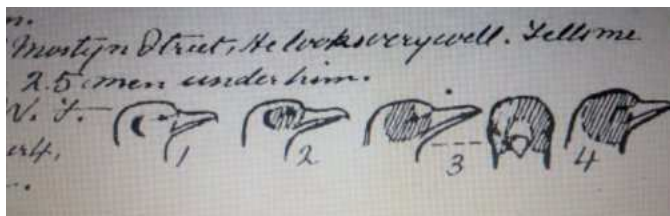 n.
Mostyn Street, He looks very well. Tells me
25 men under him.
1 2 3 4